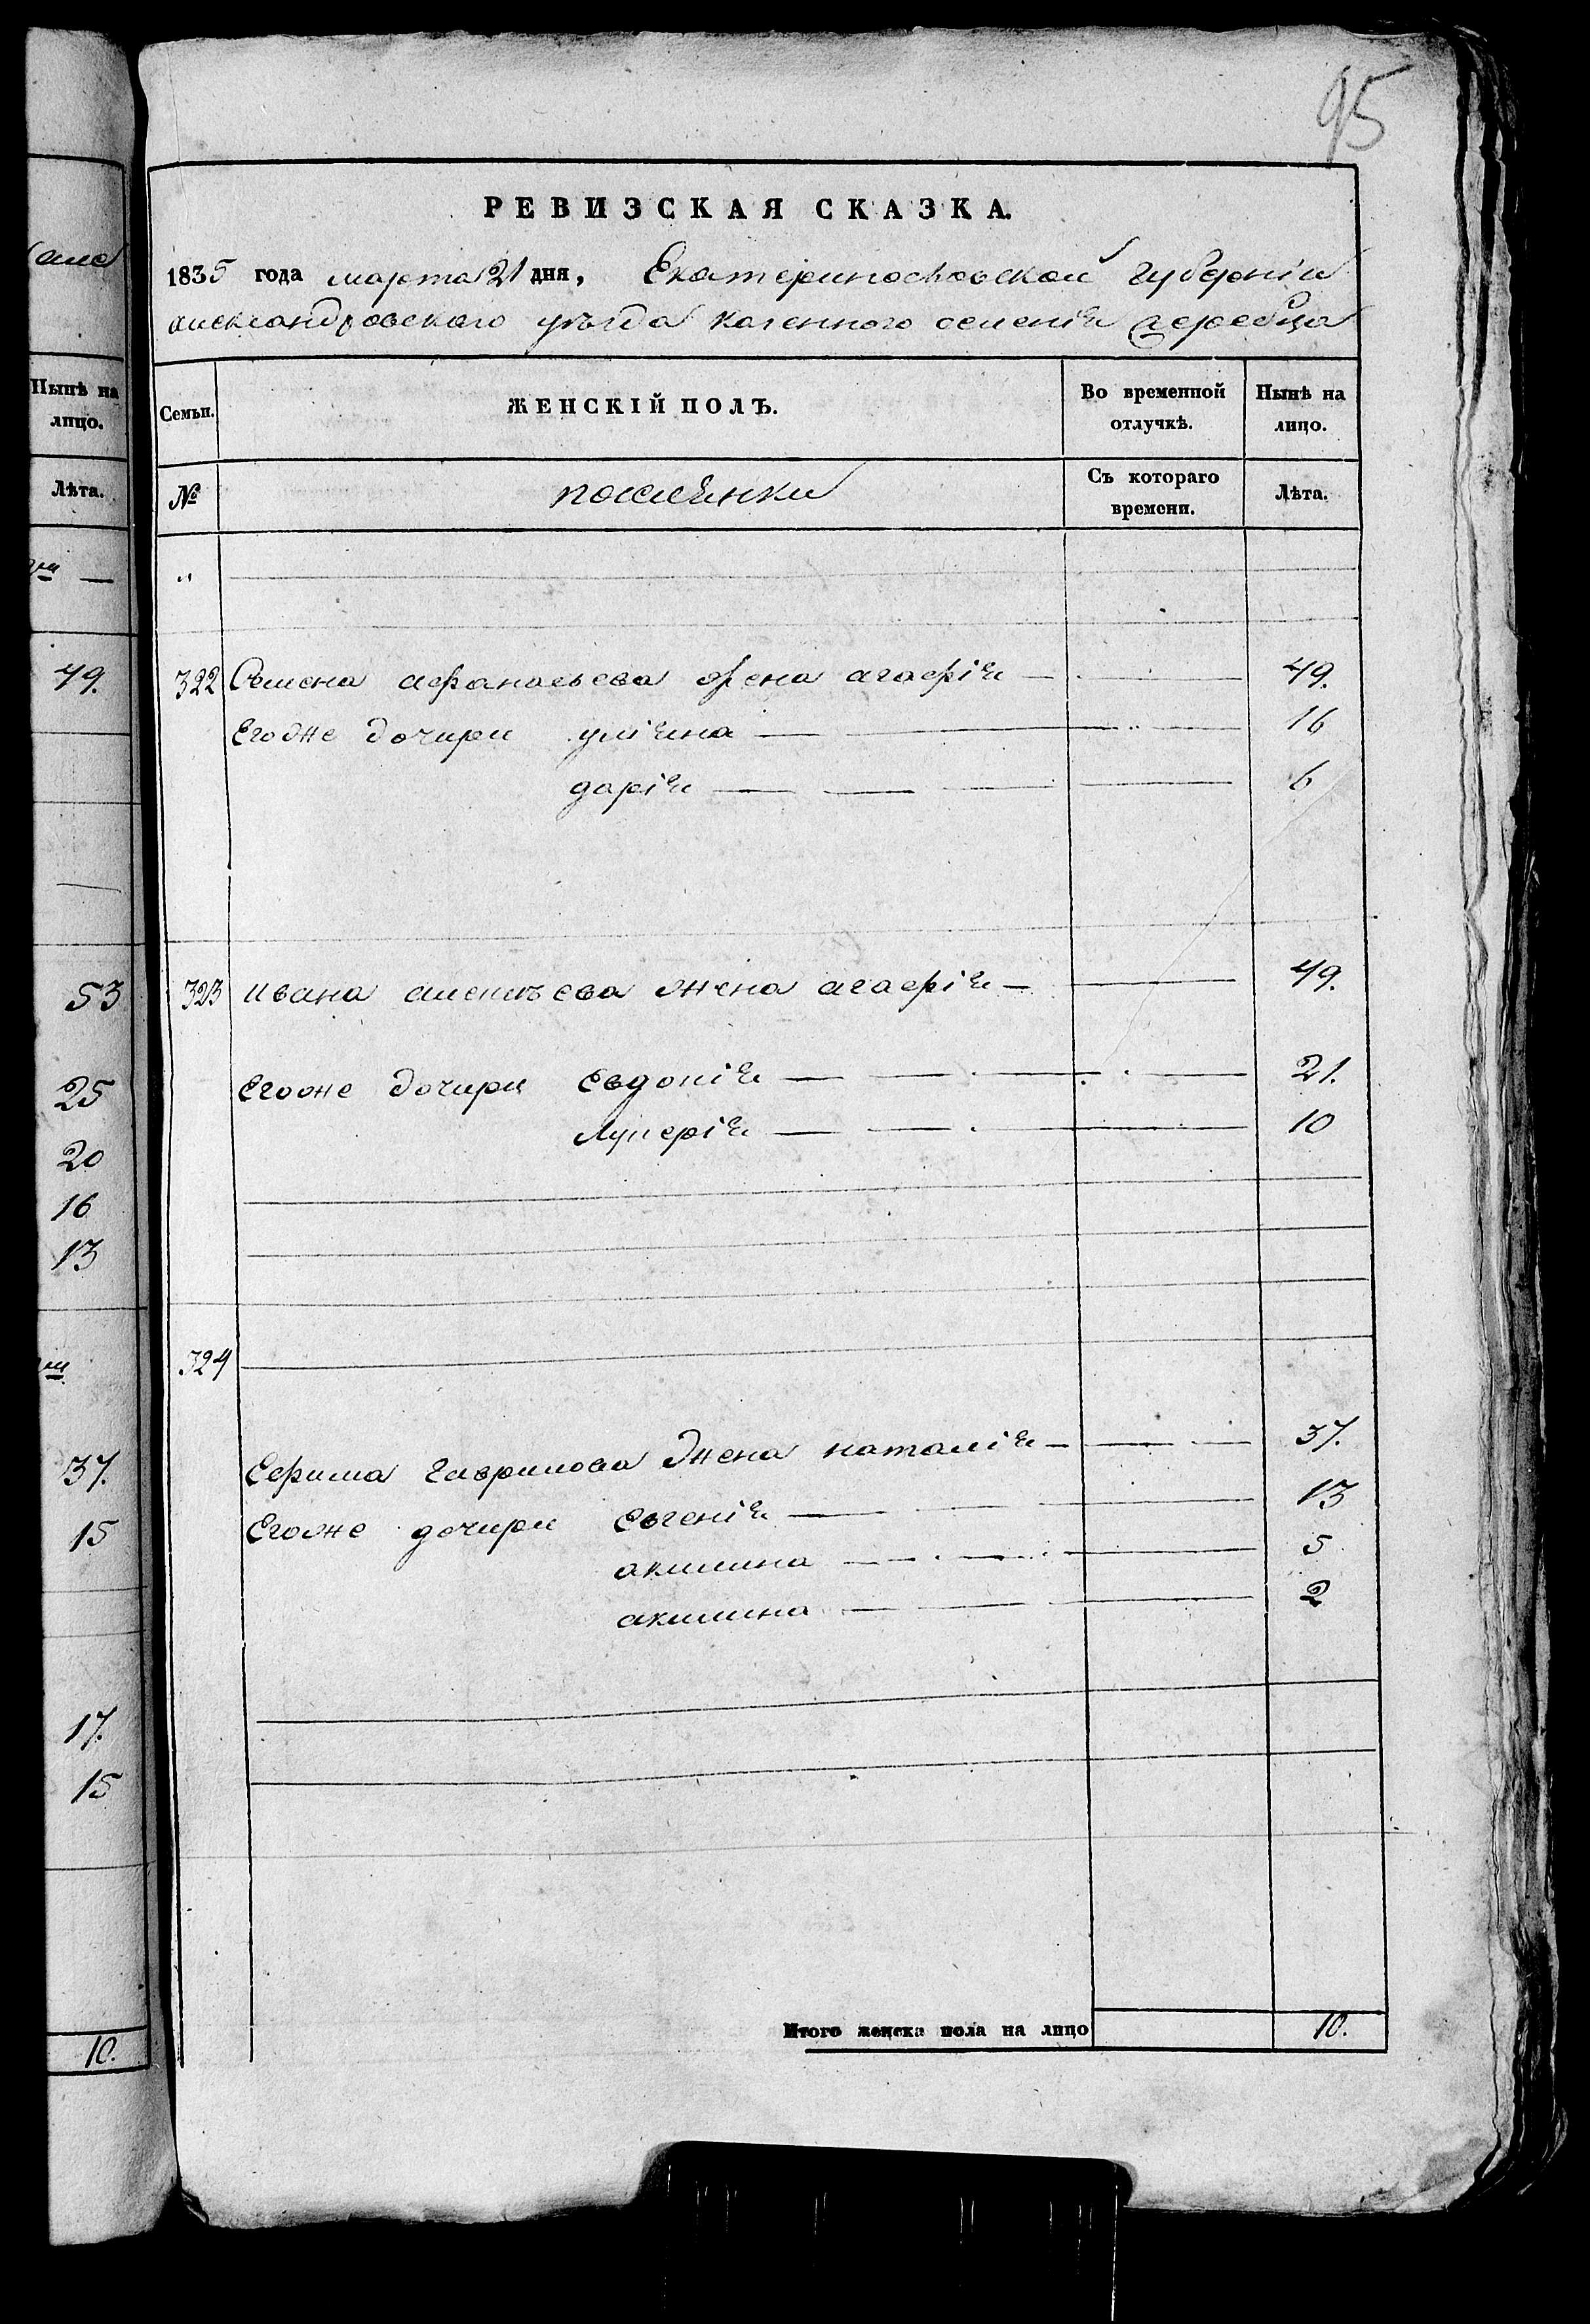 95
РЕВИЗСКАЯ СКАЗКА.
1835 года марта 21 дня, Екатеринославской губерніи
александровского уѣзда казенного селенія жеребца
Семьи.
ЖЕНСКІЙ ПОЛЪ.
Во временной отлучкѣ.
Нынѣ на лицо.
№
поселянки
Съ котораго времени.
Лѣта.
"
322 Семена афанасьева жена агафія — 49.
Егоже дочири улияна — 16
дарія — 6
323 ивана алексѣева жена агафія — 49.
Егоже дочири Евдокія — 21.
лукерія — 10
324
Ефима гаврилова жена наталія — 37.
Егоже дочири Евгенія — 13
акилина — 5
акилина — 2
Итого женска пола на лицо 10.
Нынѣ на
лицо.
Лѣта.
49.
53
25
20
16
13
37.
15
17.
15
10.